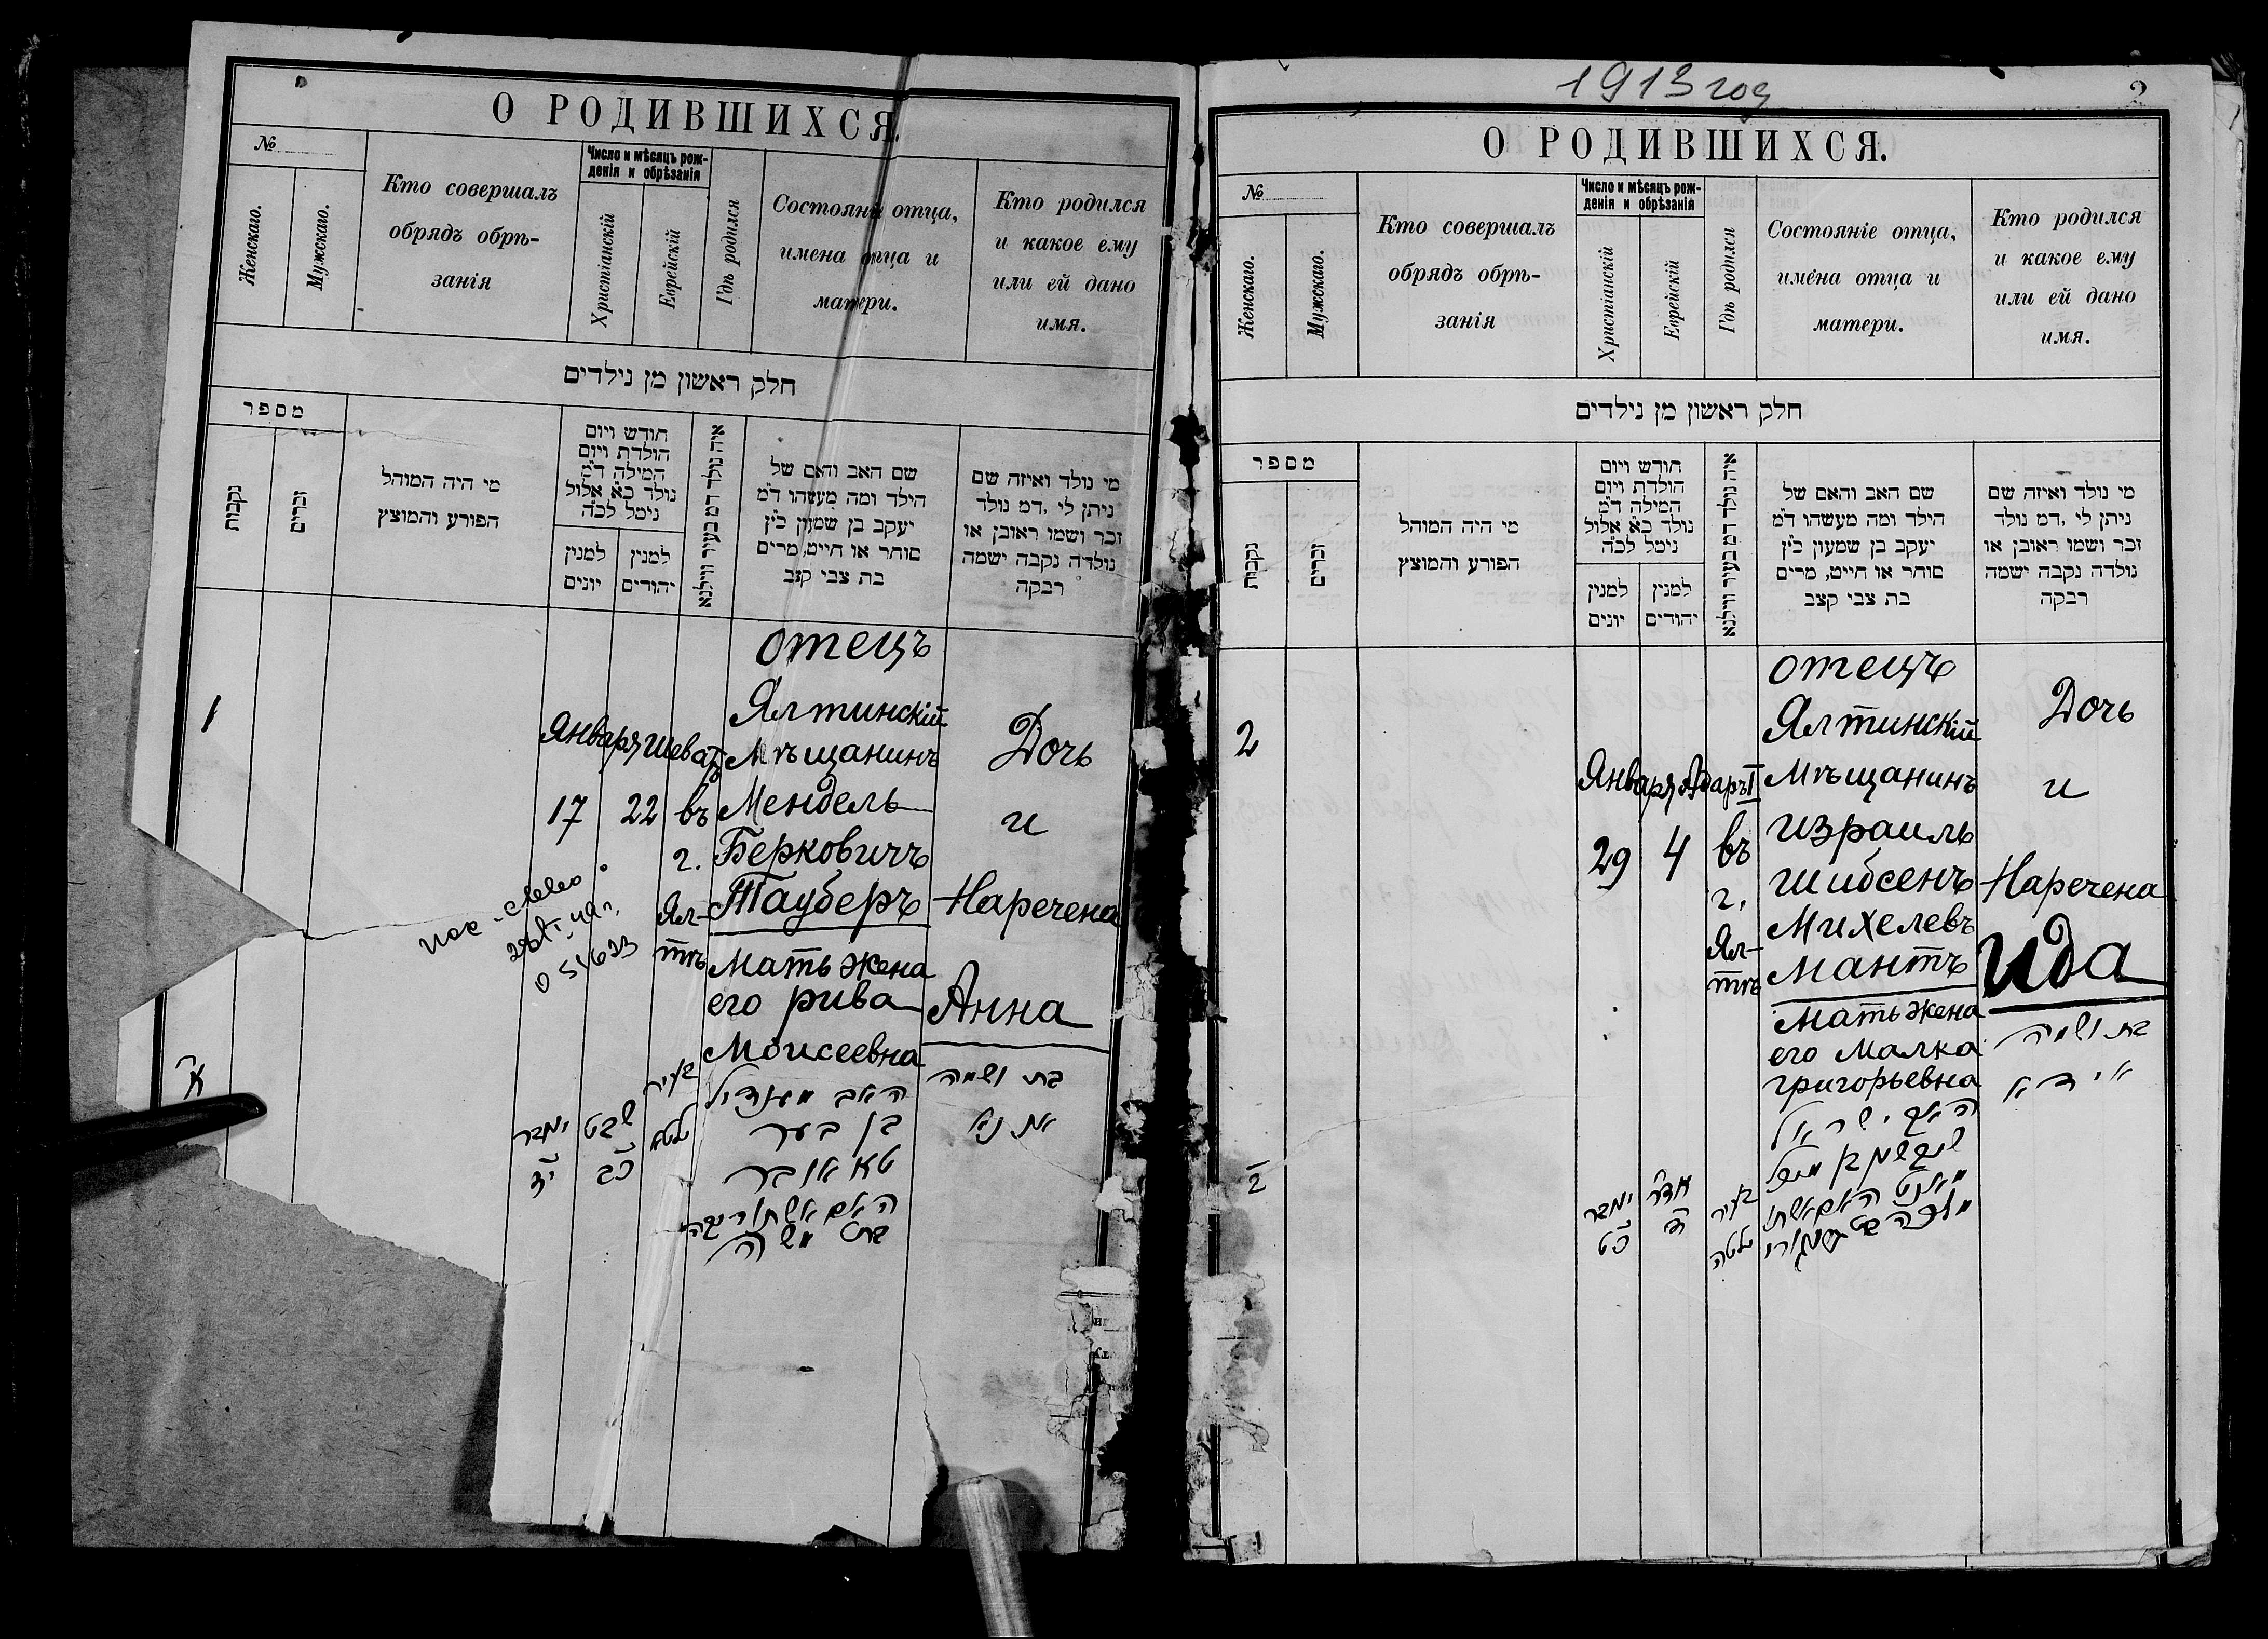 О РОДИВШИХСЯ.
№
Женскаго.
Мужскаго.
Кто совершалъ
обрядъ обрѣ-
занія
Число и мѣсяцъ рож-
денія и обрѣзанія
Христіанскій
Еврейскій
Гдѣ родился
Состояніе отца,
имена отца и
матери.
Кто родился
и какое ему
или ей дано
имя.
חלק ראשון מן נילדים
מספר
נקבות
זכרים
מי היה המוהל
הפורע והמוצץ
חודש ויום
הולדת ויום
המילה ד"מ
נולד כ"א אלול
נימל לכ"ה
למנין
יונים
למנין
יהודים
איה נולד דמ בעיר ווילנא
שם האב והאם של
הילד ומה מעשהו ד"מ
יעקב בן שמעון כ"ץ
סוחר או חייט, מרים
בת צבי קצב
מי נולד ואיזה שם
ניתן לי, דמ נולד
זכר ושמו ראובן או
נולדה נקבה ישמה
רבקה
1
Января
17
Шеватъ
22
въ
г.
Ял-
тѣ
отецъ
Ялтинскій
Мѣщанинъ
Мендель
Берковичъ
Тауберъ
Мать жена
его Рива
Моисеевна
Дочь
и
Наречена
Анна
051623
א
ינבר
יז
שבט
כב
בעיר
ילטא
האב מענדיל
בן בער
טאובר
האם אשתו ריבה
בת משה
בת ושמה
אננא
1913 год
2
О РОДИВШИХСЯ.
№
Женскаго.
Мужскаго.
Кто совершалъ
обрядъ обрѣ-
занія
Число и мѣсяцъ рож-
денія и обрѣзанія
Христіанскій
Еврейскій
Гдѣ родился
Состояніе отца,
имена отца и
матери.
Кто родился
и какое ему
или ей дано
имя.
חלק ראשון מן נילדים
מספר
נקבות
זכרים
מי היה המוהל
הפורע והמוצץ
חודש ויום
הולדת ויום
המילה ד"מ
נולד כ"א אלול
נימל לכ"ה
למנין
יונים
למנין
יהודים
איה נולד דמ בעיר ווילנא
שם האב והאם של
הילד ומה מעשהו ד"מ
יעקב בן שמעון כ"ץ
סוחר או חייט, מרים
בת צבי קצב
מי נולד ואיזה שם
ניתן לי, דמ נולד
זכר ושמו ראובן או
נולדה נקבה ישמה
רבקה
2
Января
29
Адаръ I
4
въ
г.
Ял-
тѣ
отецъ
Ялтинскій
Мѣщанинъ
Израиль
Шибсенъ
Михелевъ
Мантъ
Мать жена
его Малка
Григорьевна
Дочь
и
Наречена
Ида
ב
ינבר
כט
אדר
ד
בעיר
ילטה
האב ישראל
מאנט האם אשתו
בת ושמה
אידא